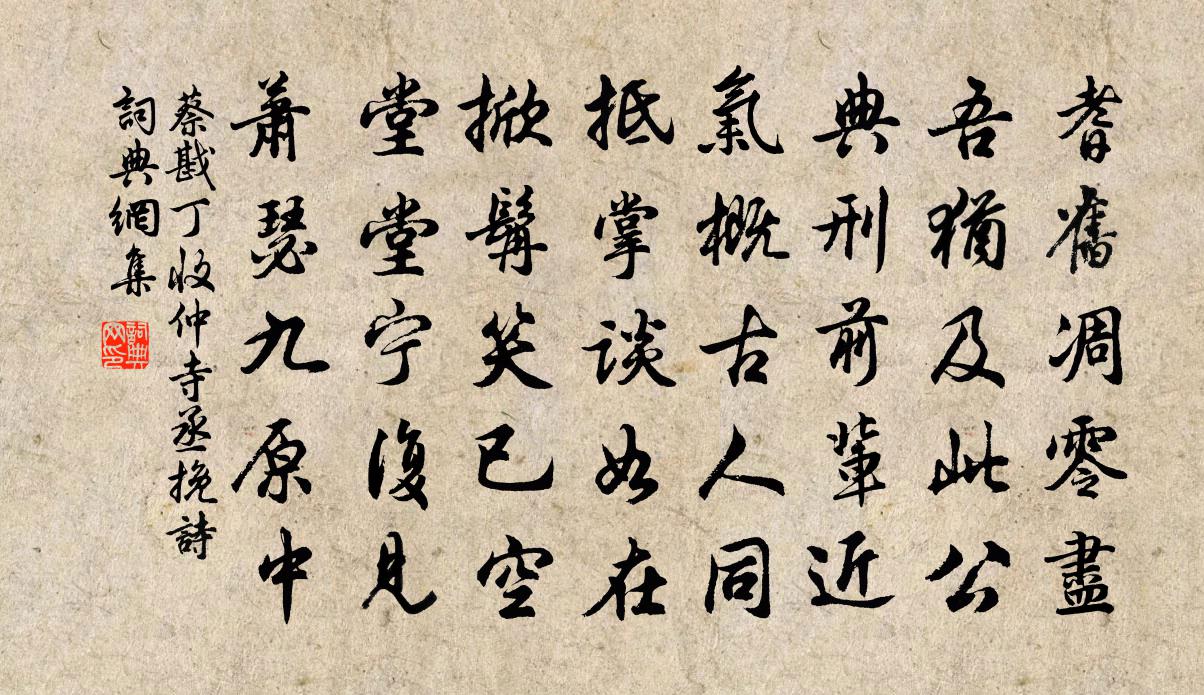 耆舊凋零盡
吾猶及此公
典刑前輩近
氣概古人同
抵掌談如在
掀髯笑已空
堂堂宁復見
蕭瑟九原中
蔡戡丁收仲寺丞挽詩
詞典網集
詞典网印